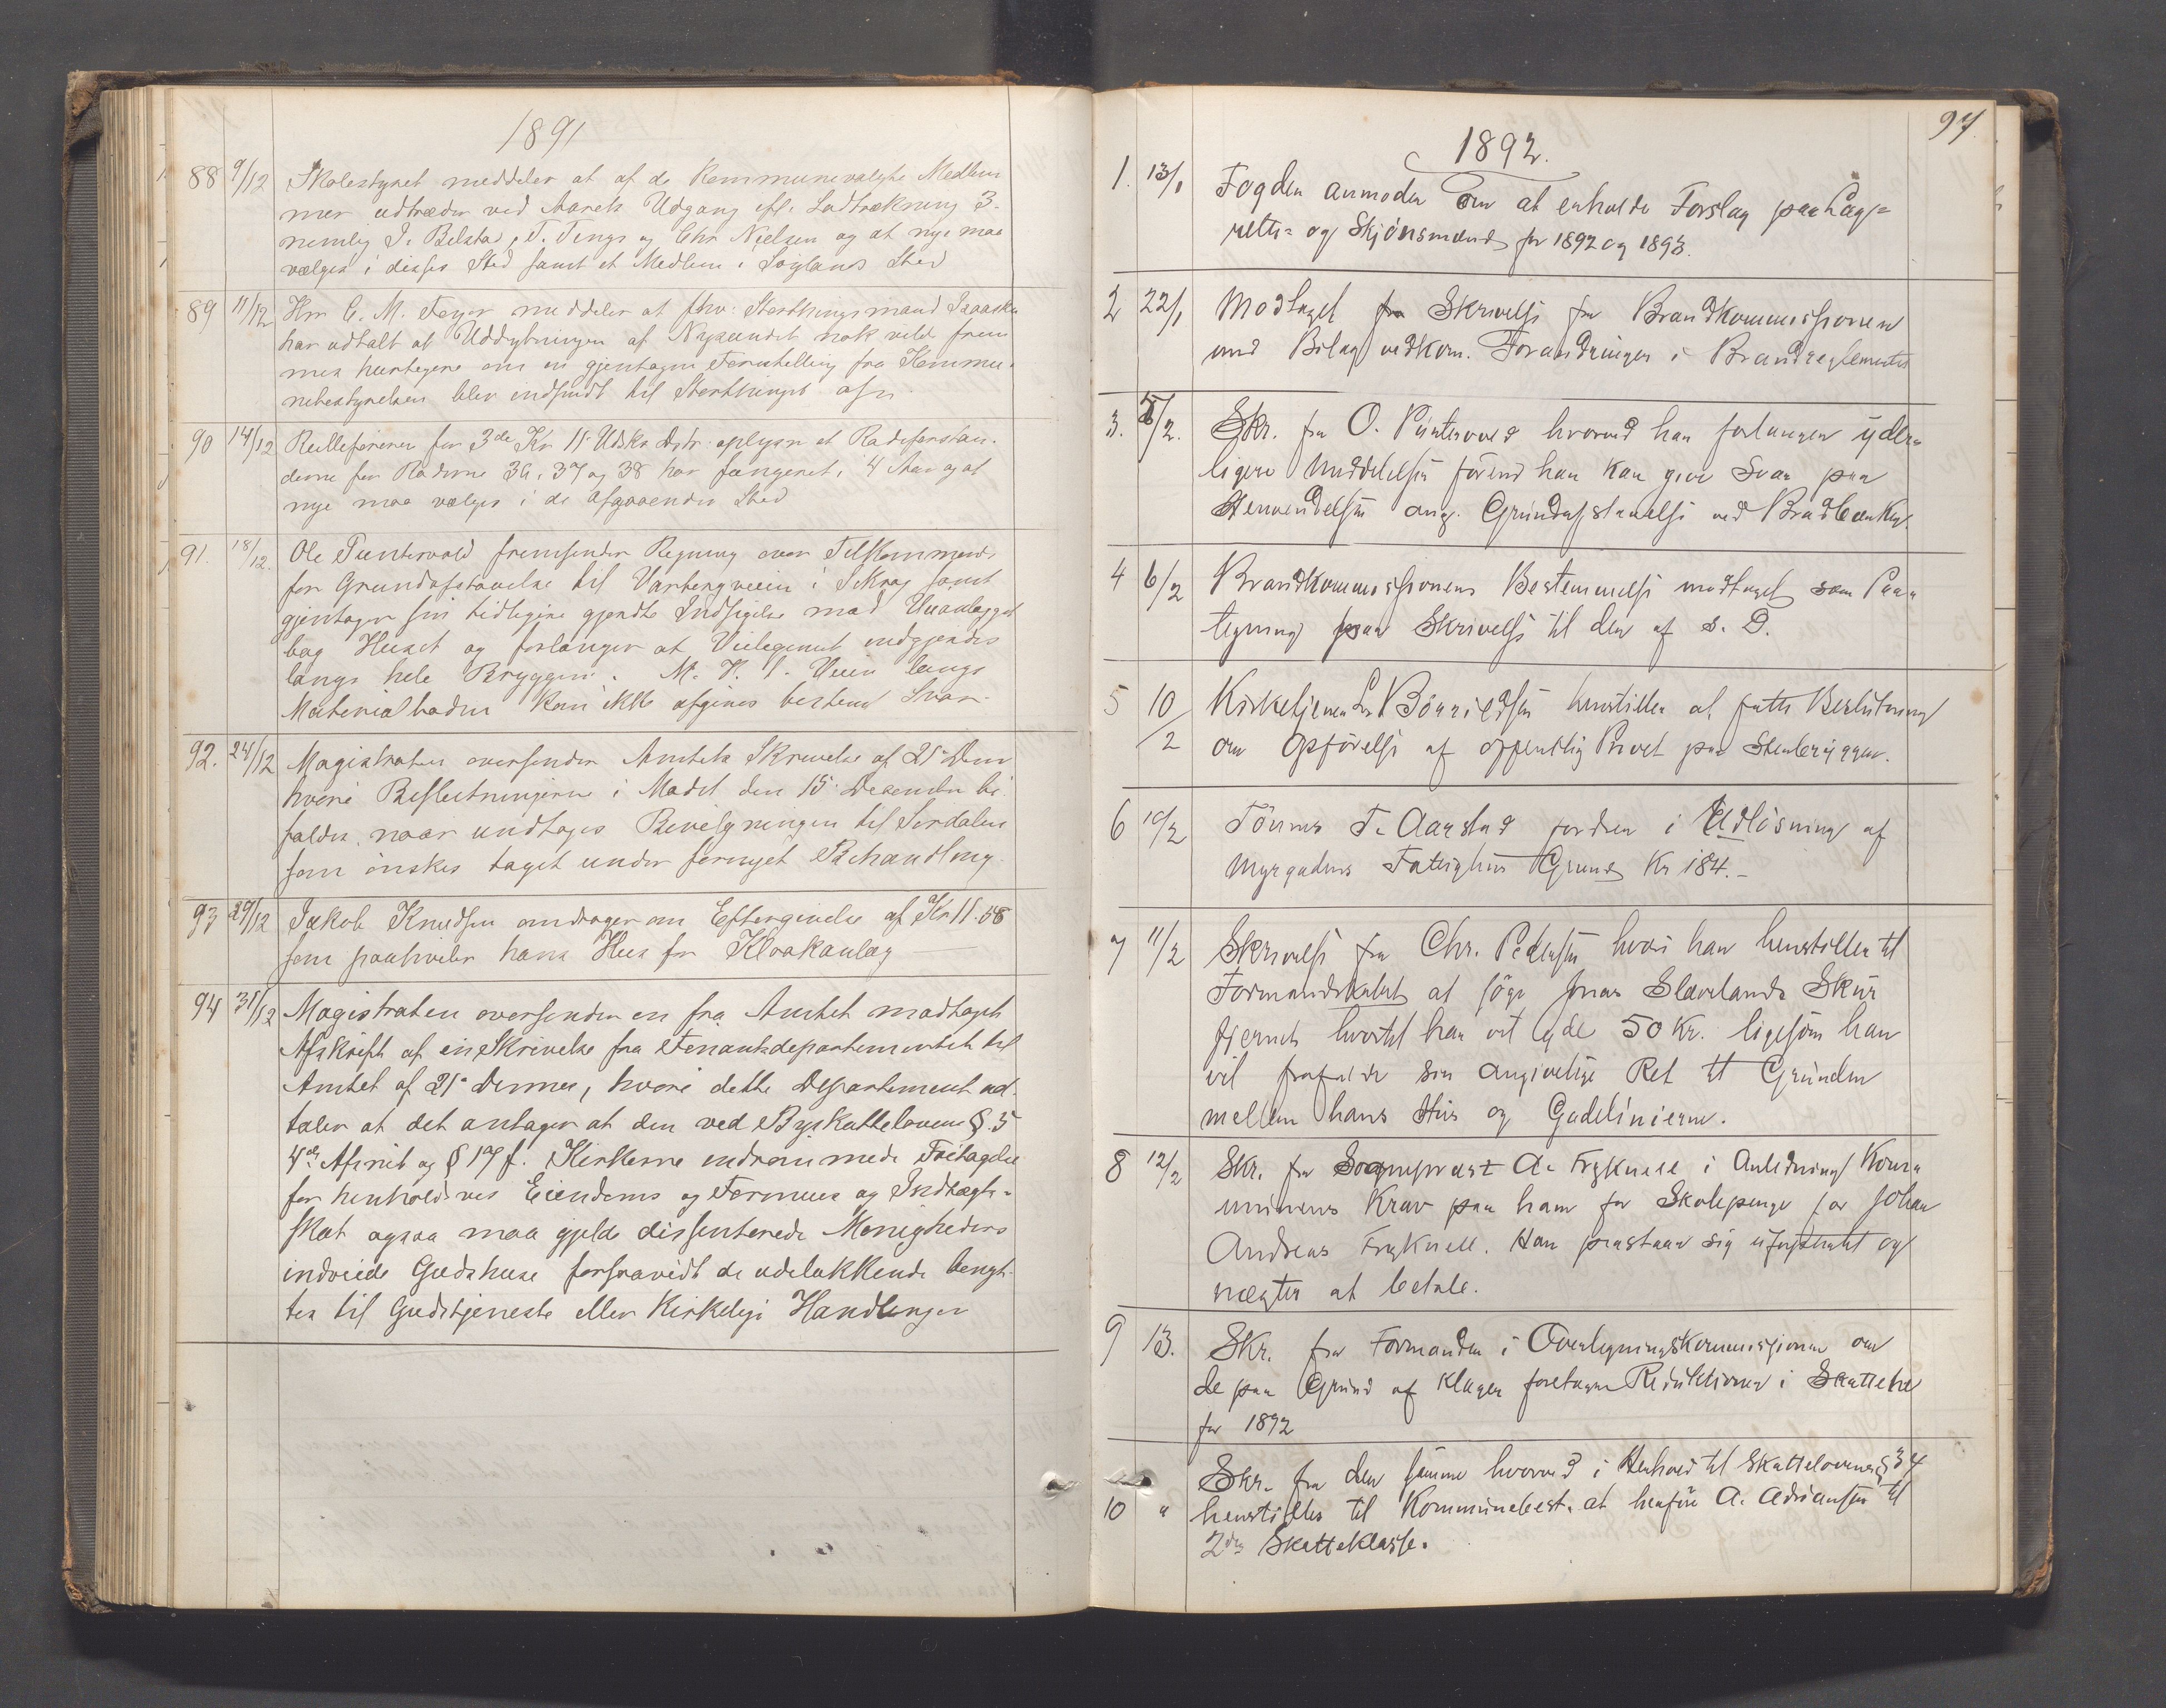 1891
88 9/12 Skolestyret meddeler at af de Kommunevalgte Medlem
mer udtræder ved Aarets Udgang efl. Lodtrækning 3.
nemlig J. Belstad, T. Tengs og Chr Nielsen og at nye maa
vælges i disses Sted samt et Medlem i Søylands Sted
89 11/12 Hrr C. M. Feyer meddeler at fhv: Storthingsmand
har udtalt at Uddybningen af Nysundet nok vilde frem
mes hurtigere om en gjentagen Forestilling fra Kommu-
nebestyrelsen blev indsendt til Storthinget
90 14/12 Rulleføreren for 3de Kr 11 Udskr Distr. oplyser at Rodeforstan-
derne for Roderne 36, 37 og 38 har fungeret i 4 Aar og at
nye maa vælges i de Afgaaendes Sted
91. 18/12. Ole Puntervold fremsender Regning over Tilkommende
for Grundafstaaelse til Varbergveien i Sikrag samt
gjentager sin tidligere gjendte Indsigelse mod Veianlægget
bag Huset og forlanger at Veilegemet indgjerdes
langs hele Bryggen. M. H. t. Veien langs
Materialboden kan ikke afgives bestemt Svar.
92. 24/12 Magistraten oversender Amtets Skrivelse af 21 Dem
hvori Beslutningerne i Mødet den 15 December bi
faldes, naar undtages Bevilgningen til Sirdalen
som ønskes taget under fornyet Behandling.
93 29/12 Jakob Knudsen andrager om Eftergivelse af Kr 11.58
som paahviler hans Hus for Kloakanlæg
94 31/12 Magistraten oversender en fra Amtet modtaget
Afskrift af en Skrivelse fra Finantsdepartementet til
Amtet af 21 Dennes, hvori dette Departement ud-
taler at det antager at den ved Byskatteloven § 5
4de Afsnit og § 17 f. Kirkerne indrømmede Fritagelse
for henholdsvis Eiendoms og Formues og Indtægts-
skat ogsaa maa gjelde dissenterede Menigheders
indviede Gudshuse forsaavidt de udelukkende benyt-
tes til Gudstjeneste eller Kirkelige Handlinger
97.
1892.
1. 13/1 Fogden anmoder om at erholde Forslag paa Lag-
retts- og Skjönsmænd for 1892 og 1893.
2 22/1 Modtaget fra Skrivelse fra Brandkommissionen
med Bilag vedkom. Forandringer i Brandreglementet
3. 5/2. Skr. fra O. Puntervold hvorved han forlanger yder-
ligere Meddelelse förend han kan give Svar paa
Henvendelsen ang. Grundafstaaelse ved Bradbænken.
4 6/2 Brandkommissionens Bestemmelse modtaget som Paa-
tegning paa Skrivelse til den af s. D.
5 10/2 Kirketjener L. Bönnildsen henstiller at fatte Beslutning
om Opförelse af offentlig Privet paa Stenbryggen.
6 10/2 Tönnes T. Aarstad fordrer i Udlösning af
Myrgadens Fattighus Grund Kr 184.-
7 11/2 Skrivelse fra Chr. Pedersen hvori han henstiller til
Formandskabet at söge Jonas Slævelands Skur
fjernet hvortil han vil yde 50 Kr. ligesom han
vil frafalde sin angivelige Ret til Grunden
mellem hans Hus og Gadelinierne.
8 12/2 Skr. fra Sogneprest A. Fryknell i Anledning Kom-
munens Krav paa ham for Skolepenge for Johan
Andreas Fryknell. Han paastaar sig uforpligtet og
nægter at betale.
9 13. Skr. fra Formanden i Overligningskommissionen om
de paa Grund af Klager foretagne Reduktioner i Skatterne
for 1892
10 " Skr. fra den samme hvorved i Henhold til Skattelovens § 34
henstilles til Kommunebest. at henføre A. Adriansen til
2den Skatteklasse.